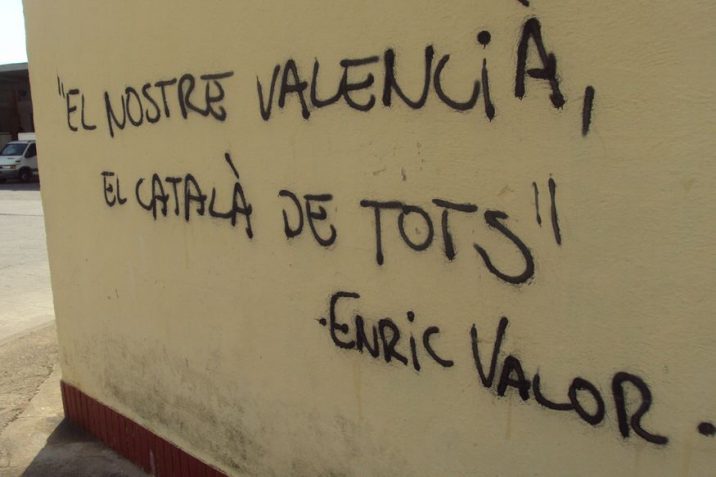 "EL NOSTRE VALENCIÀ,
EL CATALÀ DE TOTS"
·ENRIC VALOR.